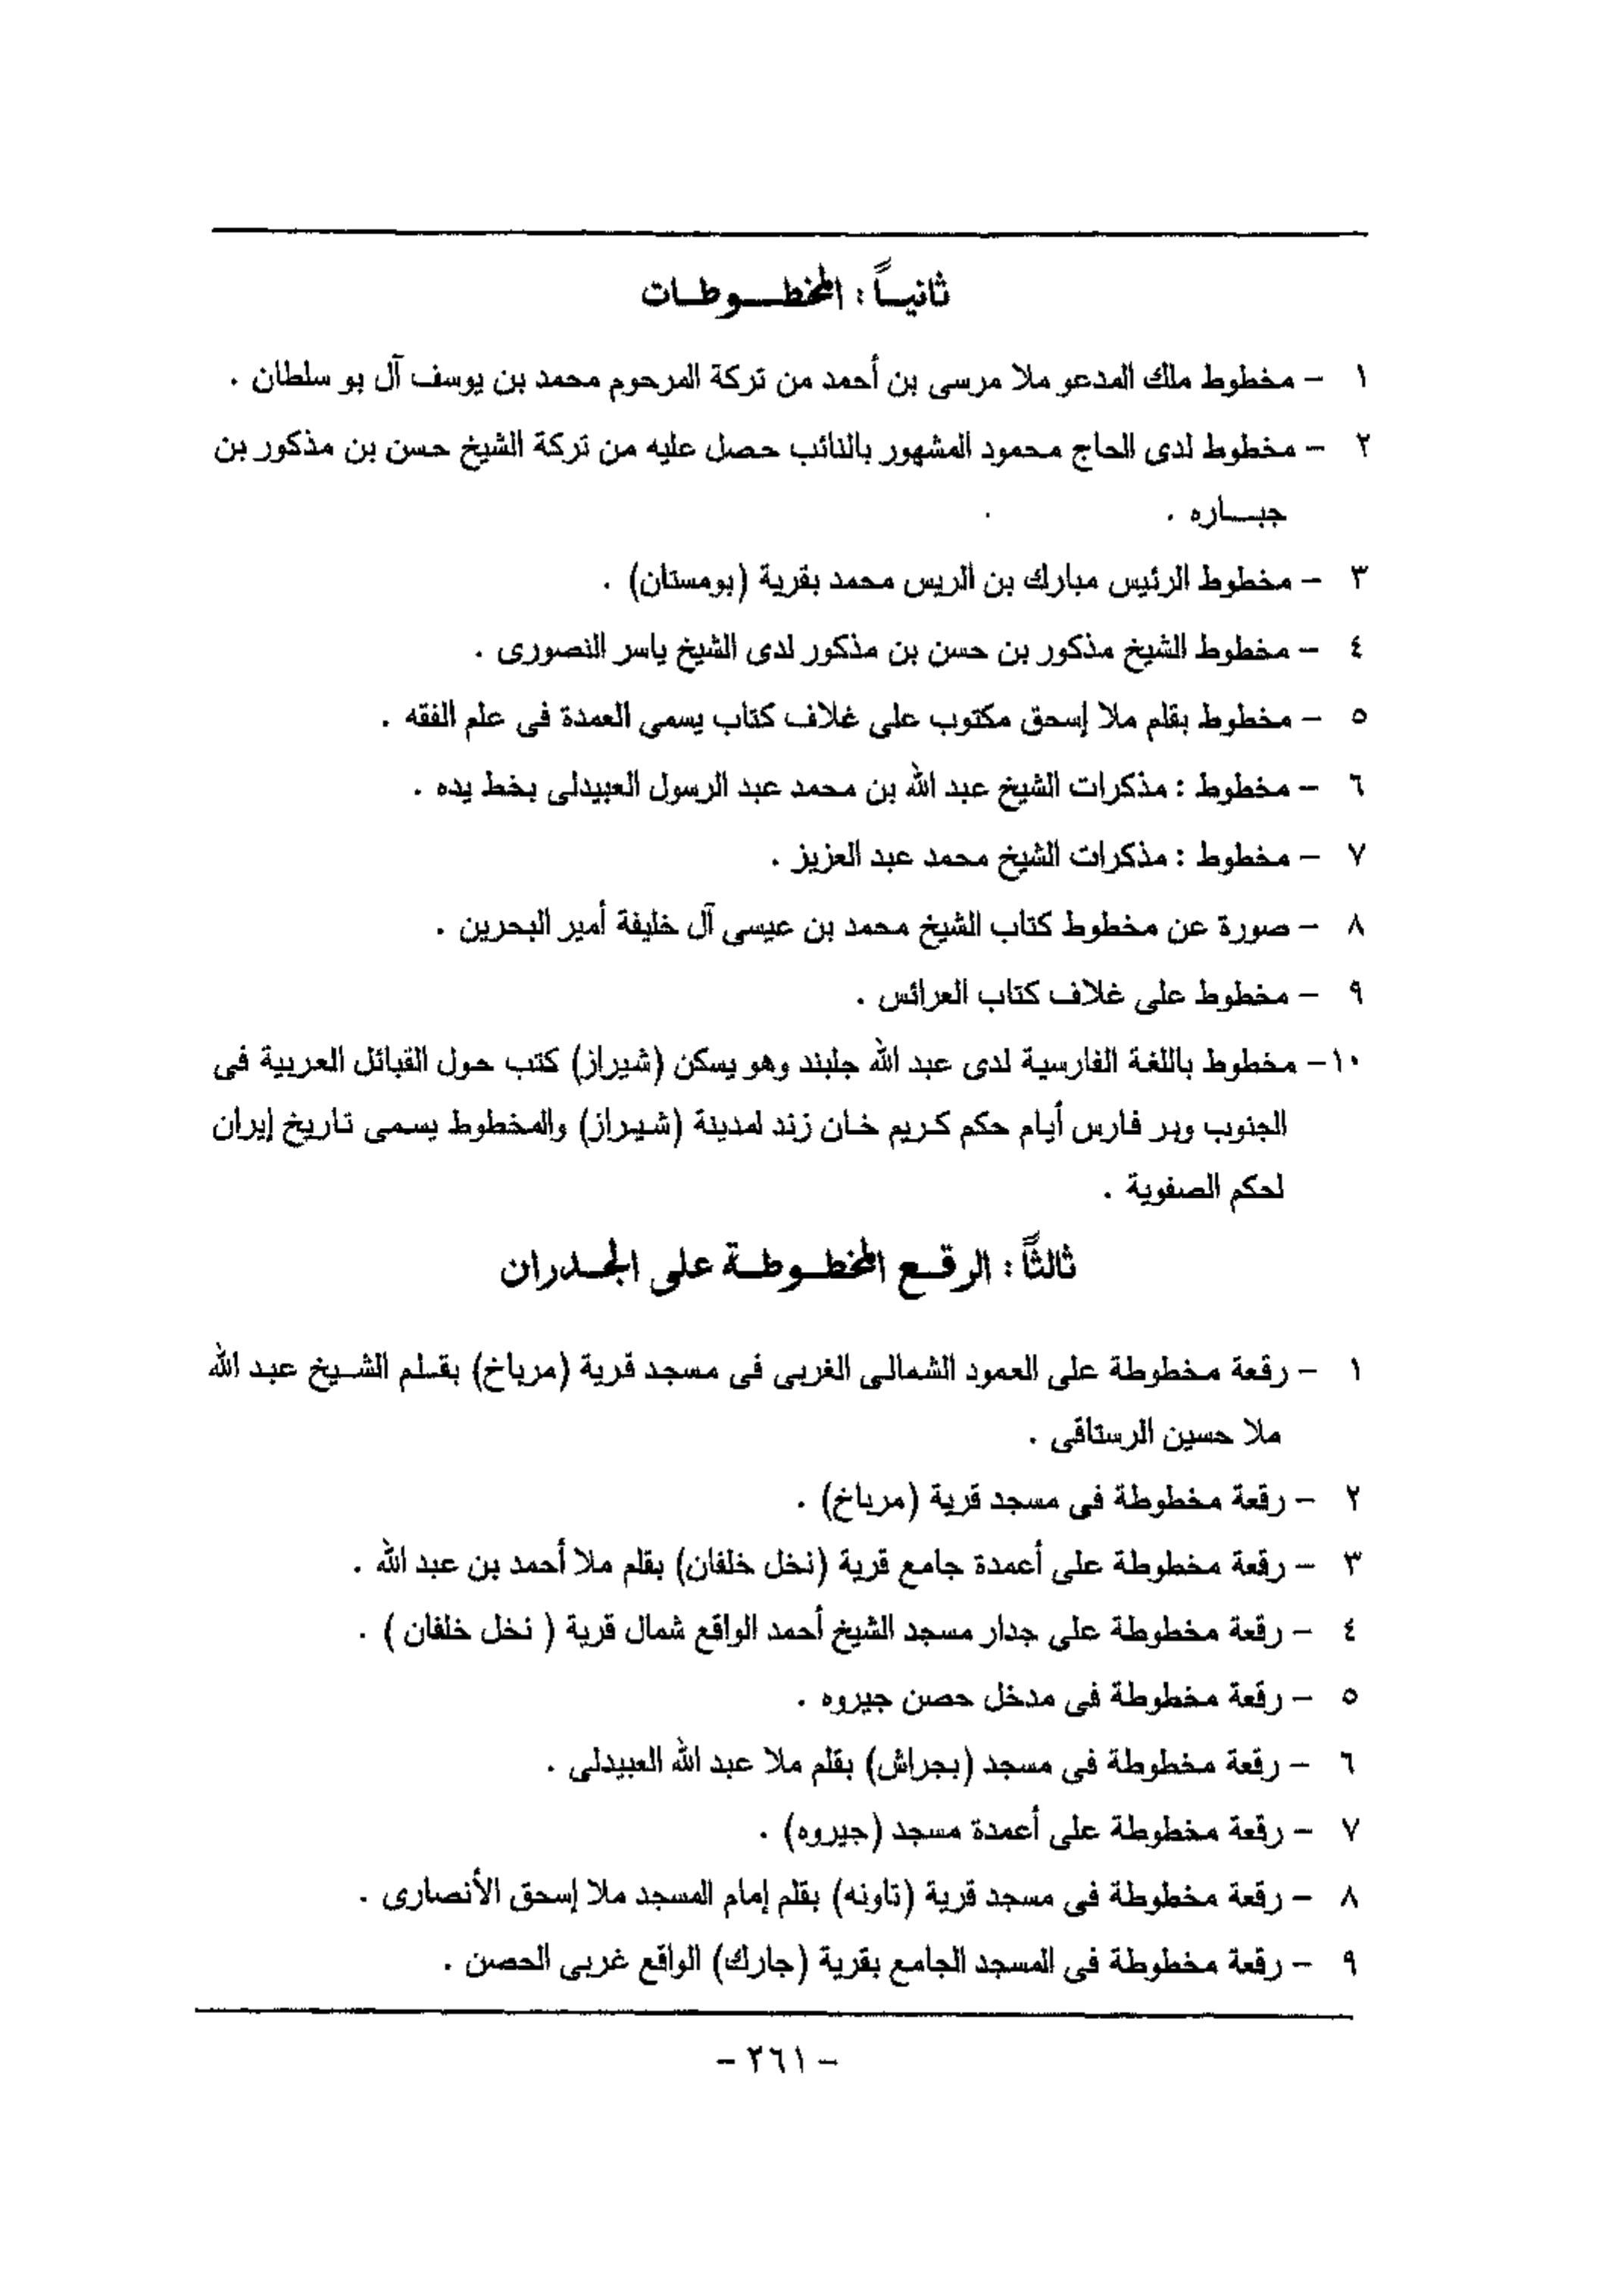 ثانيـاً : المخطـــوطـات
١ – مخطوط ملك المدعو ملا مرسى بن أحمد من تركة المرحوم محمد بن يوسف آل بو سلطان .
٢ – مخطوط لدى الحاج محمود المشهور بالنائب حصل عليه من تركة الشيخ حسن بن مذكور بن
جبـــاره .
٣ – مخطوط الرئيس مبارك بن الريس محمد بقرية (بومستان) .
٤ – مخطوط الشيخ مذكور بن حسن بن مذكور لدى الشيخ ياسر النصورى .
٥ – مخطوط بقلم ملا إسحق مكتوب على غلاف كتاب يسمى العمدة فى علم الفقه .
٦ – مخطوط : مذكرات الشيخ عبد الله بن محمد عبد الرسول العبيدلى بخط يده .
٧ – مخطوط : مذكرات الشيخ محمد عبد العزيز .
٨ – صورة عن مخطوط كتاب الشيخ محمد بن عيسى آل خليفة أمير البحرين .
٩ – مخطوط على غلاف كتاب العرائس .
١٠– مخطوط باللغة الفارسية لدى عبد الله جلبند وهو يسكن (شيراز) كتب حول القبائل العربية فى
الجنوب وبر فارس أيام حكم كريم خان زند لمدينة (شيراز) والمخطوط يسمى تاريخ إيران
لحكم الصفوية .
ثالثاً : الرقـع المخطـوطـة على الجـدران
١ – رقعة مخطوطة على العمود الشمالى الغربى فى مسجد قرية (مرباخ) بقـلم الشـيخ عبـد الله
ملا حسين الرستاقى .
٢ – رقعة مخطوطة فى مسجد قرية (مرباخ) .
٣ – رقعة مخطوطة على أعمدة جامع قرية (نخل خلفان) بقلم ملا أحمد بن عبد الله .
٤ – رقعة مخطوطة على جدار مسجد الشيخ أحمد الواقع شمال قرية ( نخل خلفان ) .
٥ – رقعة مخطوطة فى مدخل حصن جيروه .
٦ – رقعة مخطوطة فى مسجد (بجراش) بقلم ملا عبد الله العبيدلى .
٧ – رقعة مخطوطة على أعمدة مسجد (جيروه) .
٨ – رقعة مخطوطة فى مسجد قرية (تاونه) بقلم إمام المسجد ملا إسحق الأنصارى .
٩ – رقعة مخطوطة فى المسجد الجامع بقرية (جارك) الواقع غربى الحصن .
– ٢٦١ –